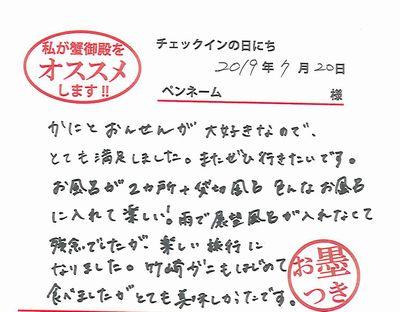 私が蟹御殿を
オススメ
します!!
チェックインの日にち
2019年7月20日
ペンネーム 様
かにとおんせんが大好きなので、
とても満足しました。またぜひ行きたいです。
お風呂が2カ所+貸切風呂 色んなお風呂
に入れて楽しい!雨で展望風呂が入れなくて
残念でしたが、楽しい旅行に
なりました。竹崎がにもはじめて
食べましたがとても美味しかったです。
お墨
つき